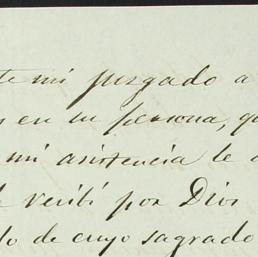 te mi juzgado a
s en su persona, qu
mi asistencia le
e recibí por Dios
lo de cuyo sagrado